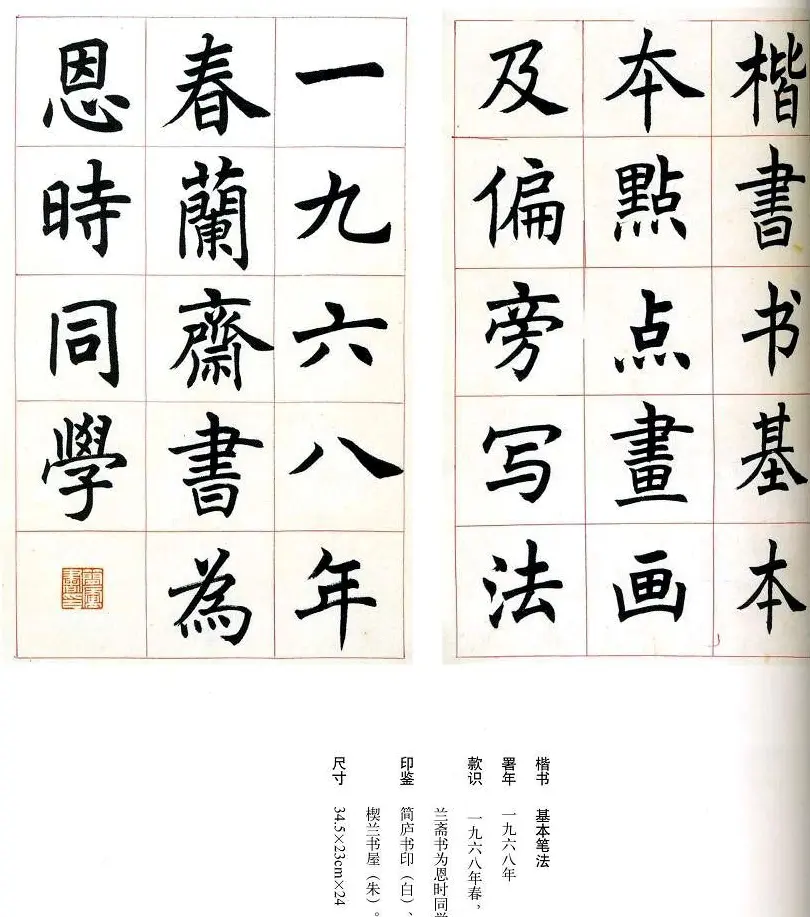 楷書书基本
本點点畫画
及偏旁写法
一九六八年
春蘭齋書為
恩時同學
楷书 基本笔法
署年 一九六八年
款识 一九六八年春，
兰斋书为恩时同学
印鉴 简庐书印（白）、
楔兰书屋（朱）。
尺寸 34.5×23cm×24